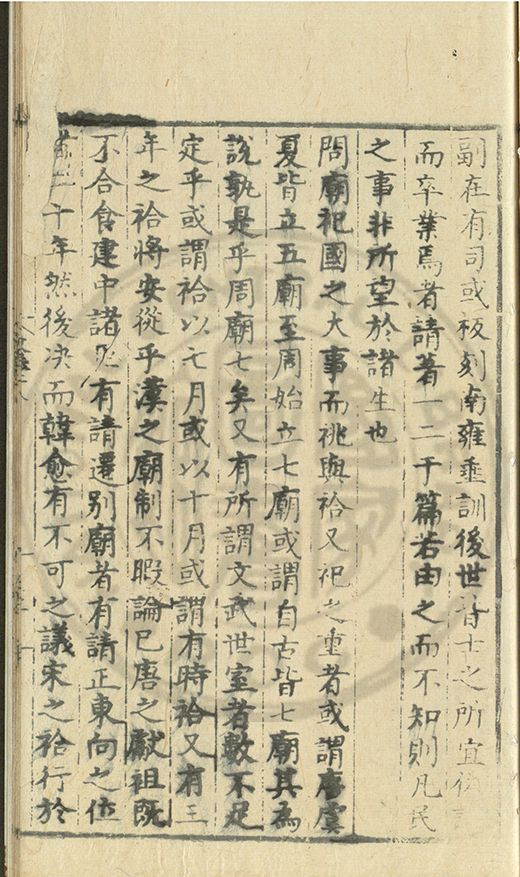 副在有司或板刻南雍垂訓後世皆士之所宜
而卒業焉者請著一二于篇若由之而不知則凡民
之事非所望於諸生也
問廟祀國之大事而祧與祫又祀之重者或謂唐虞
夏皆立五廟至周始立七廟或謂自古皆七廟其為
說孰是乎周廟七矣又有所謂文武世室者數不足
定乎或謂祫以七月或以十月或謂有時祫又有三
年之祫將安從乎漢之廟制不暇論已唐之獻祖既
不合食建中諸臣有請遷別廟者有請正東向之位
二十年然後决而韓愈有不可之議宋之祫行於